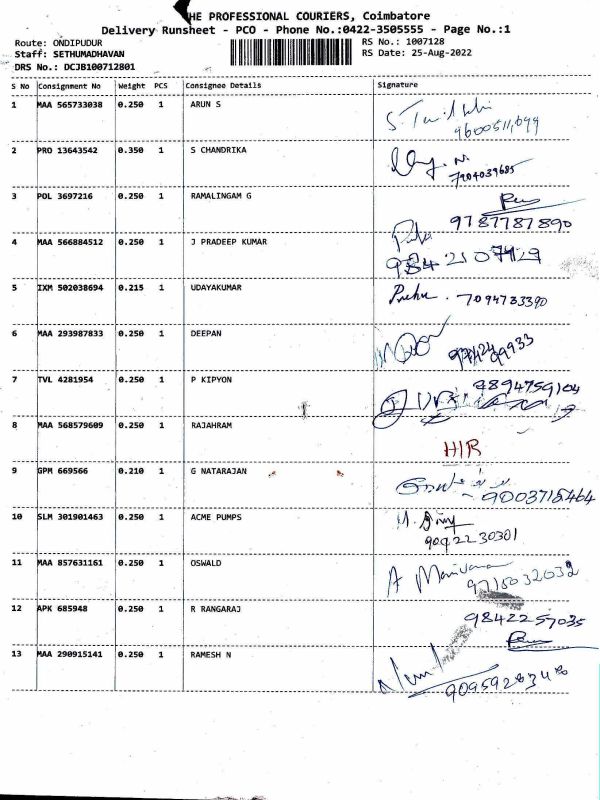 HE PROFESSIONAL COURIERS, Coimbatore
Delivery Runsheet - PCO - Phone No.:0422-3505555 - Page No.:1
Route: ONDIPUDUR RS No.: 1007128
Staff: SETHUMADHAVAN RS Date: 25-Aug-2022
DRS No.: DCJB100712801
S No Consignment No Weight PCS Consignee Details Signature
1 MAA 565733038 0.250 1 ARUN S
2 PRO 13643542 0.350 1 S CHANDRIKA
7904039685
3 POL 3697216 0.250 1 RAMALINGAM G
9787787890
4 MAA 566884512 0.250 1 J PRADEEP KUMAR
5 IXM 502038694 0.215 1 UDAYAKUMAR
7094733390
6 MAA 293987833 0.250 1 DEEPAN
7 TVL 4281954 0.250 1 P KIPYON
9894759104
8 MAA 568579609 0.250 1 RAJAHRAM
H/R
9 GPM 669566 0.210 1 G NATARAJAN
9003715464
10 SLM 301901463 0.250 1 ACME PUMPS
9042230301
11 MAA 857631161 0.250 1 OSWALD
9715032032
12 APK 685948 0.250 1 R RANGARAJ
9842257035
13 MAA 290915141 0.250 1 RAMESH N